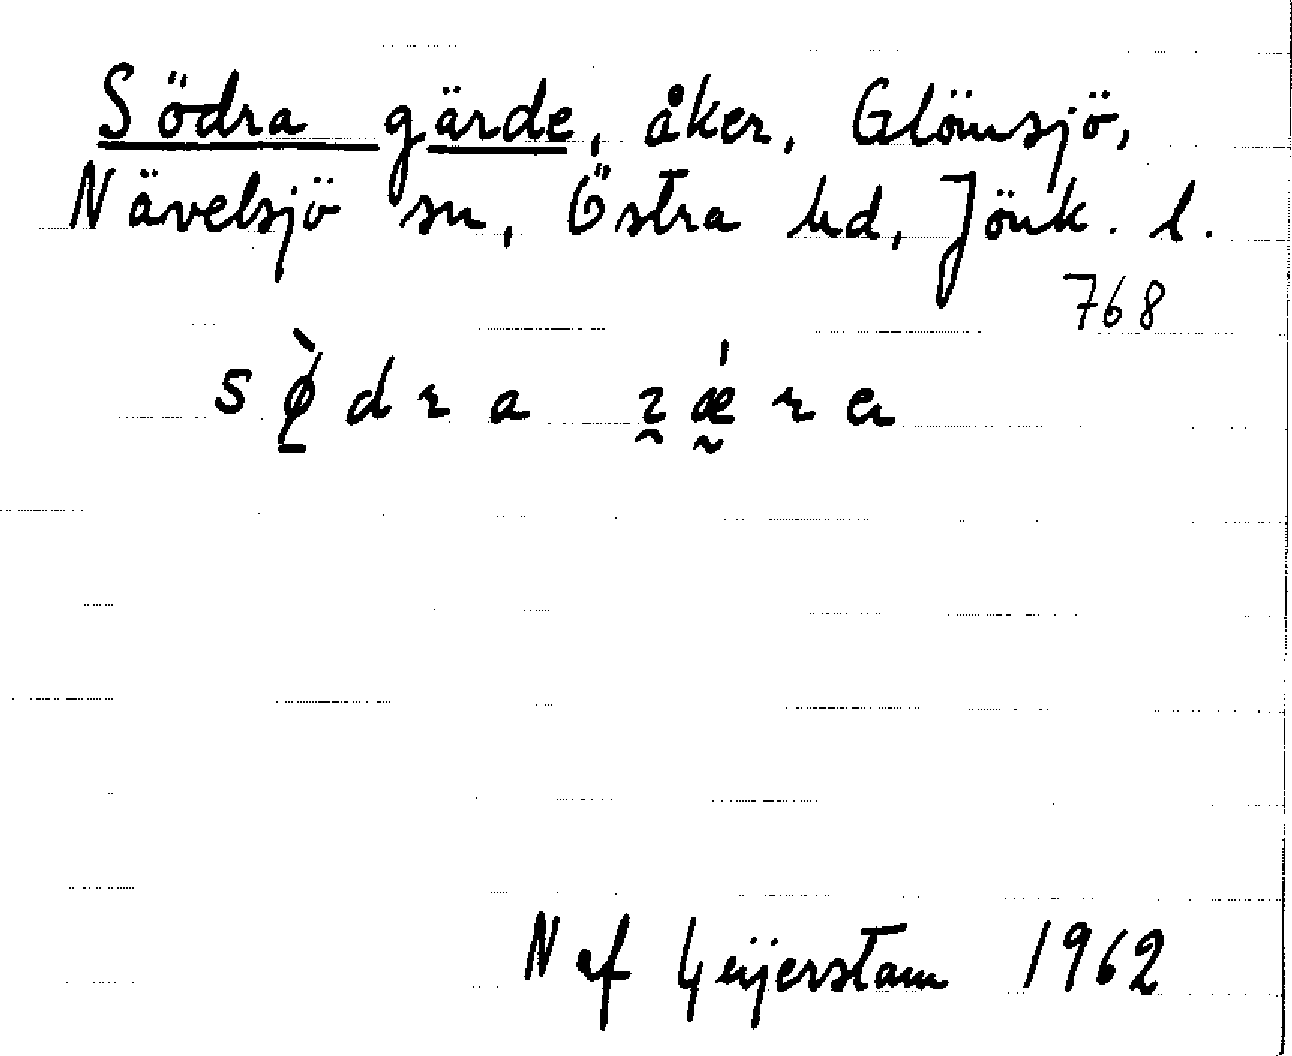 Södra gärde, åker, Glömsjö,
Nävelsjö sn, Östra hd, Jönk. l.
768
N af Geijerstam 1962